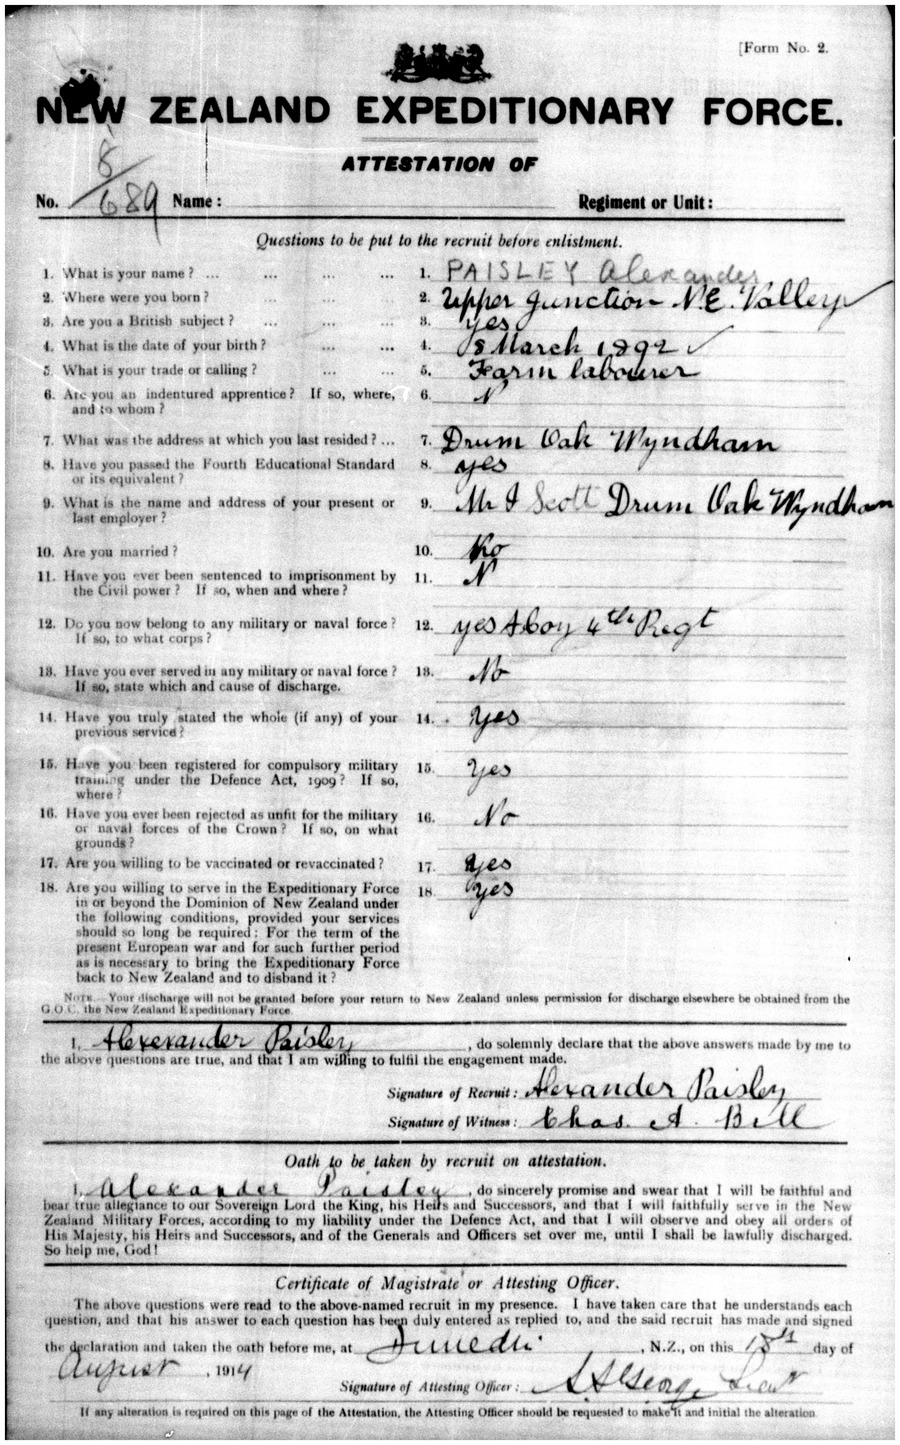 [Form No. 2.
NEW ZEALAND EXPEDITIONARY FORCE.
ATTESTATION OF
No. 8/689 Name : Regiment or Unit :
Questions to be put to the recruit before enlistment.
1. What is your name ? ... ... ... ... 1. PAISLEY Alexander
2. Where were you born ? ... ... ... 2. Upper Junction N.E. Valley
3. Are you a British subject ? ... ... ... 3. yes
4. What is the date of your birth ? ... ... 4. 8 March 1892
5. What is your trade or calling ? ... ... 5. Farm labourer
6. Are you an indentured apprentice ? If so, where, 6. N
and to whom ?
7. What was the address at which you last resided ? ... 7. Drum Oak Wyndham
8. Have you passed the Fourth Educational Standard 8. yes
or its equivalent ?
9. What is the name and address of your present or 9. Mr J Scott Drum Oak Wyndham
last employer ?
10. Are you married ? 10. No
11. Have you ever been sentenced to imprisonment by 11. N
the Civil power ? If so, when and where ?
12. Do you now belong to any military or naval force ? 12. yes A Coy 4th Regt
If so, to what corps ?
13. Have you ever served in any military or naval force ? 13. No
If so, state which and cause of discharge.
14. Have you truly stated the whole (if any) of your 14. Yes
previous service ?
15. Have you been registered for compulsory military 15. Yes
training under the Defence Act, 1909 ? If so,
where ?
16. Have you ever been rejected as unfit for the military 16. No
or naval forces of the Crown ? If so, on what
grounds ?
17. Are you willing to be vaccinated or revaccinated ? 17. Yes
18. Are you willing to serve in the Expeditionary Force 18. Yes
in or beyond the Dominion of New Zealand under
the following conditions, provided your services
should so long be required : For the term of the
present European war and for such further period
as is necessary to bring the Expeditionary Force
back to New Zealand and to disband it ?
NOTE.—Your discharge will not be granted before your return to New Zealand unless permission for discharge elsewhere be obtained from the
G.O.C. the New Zealand Expeditionary Force.
I, Alexander Paisley, do solemnly declare that the above answers made by me to
the above questions are true, and that I am willing to fulfil the engagement made.
Signature of Recruit : Alexander Paisley
Signature of Witness : Chas. A. Bell
Oath to be taken by recruit on attestation.
I, Alexander Paisley, do sincerely promise and swear that I will be faithful and
bear true allegiance to our Sovereign Lord the King, his Heirs and Successors, and that I will faithfully serve in the New
Zealand Military Forces, according to my liability under the Defence Act, and that I will observe and obey all orders of
His Majesty, his Heirs and Successors, and of the Generals and Officers set over me, until I shall be lawfully discharged.
So help me, God !
Certificate of Magistrate or Attesting Officer.
The above questions were read to the above-named recruit in my presence. I have taken care that he understands each
question, and that his answer to each question has been duly entered as replied to, and the said recruit has made and signed
the declaration and taken the oath before me, at Dunedin, N.Z., on this 18th day of
August, 1914
Signature of Attesting Officer : George Lieut
If any alteration is required on this page of the Attestation, the Attesting Officer should be requested to make it and initial the alteration.